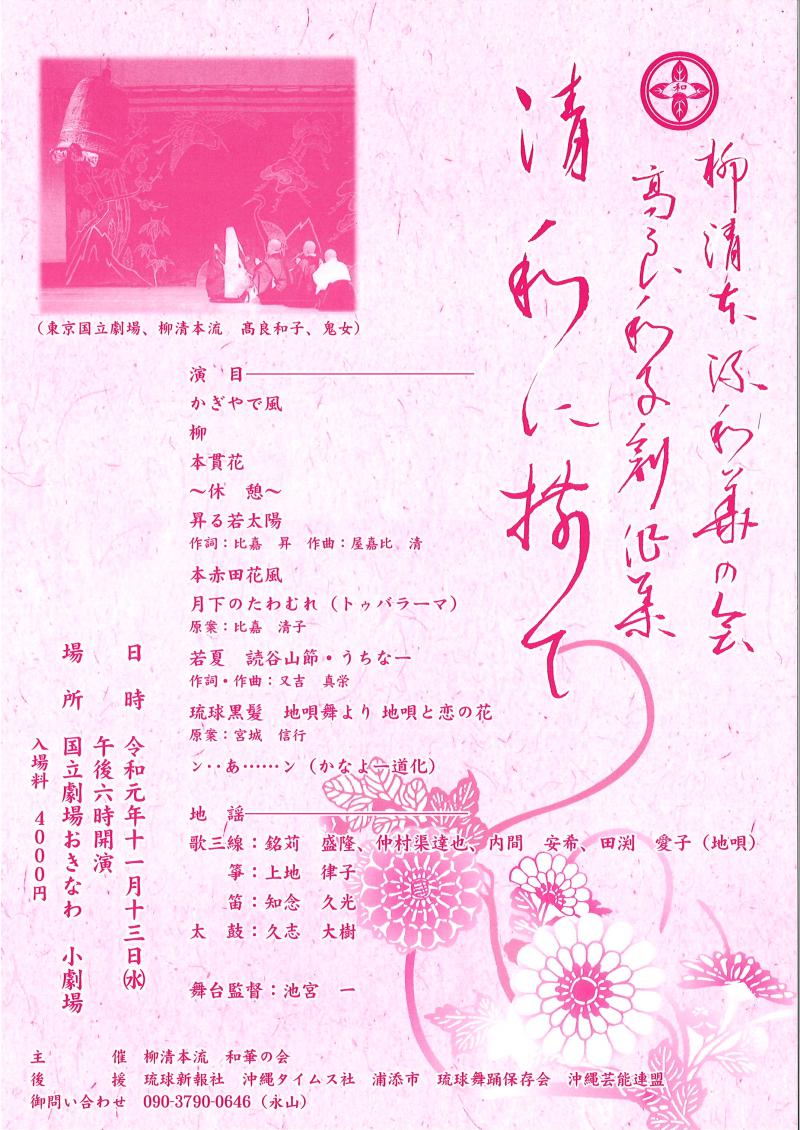 和
柳清本流和華の会
高良和子創作集
清和に撈て
（東京国立劇場、柳清本流　髙良和子、鬼女）
演　目
かぎやで風
柳
本貫花
～休　憩～
昇る若太陽
作詞：比嘉　昇　作曲：屋嘉比　清
本赤田花風
月下のたわむれ（トゥバラーマ）
原案：比嘉　清子
若夏　読谷山節・うちなー
作詞・作曲：又吉　真栄
琉球黒髪　地唄舞より 地唄と恋の花
原案：宮城　信行
ン‥あ……ン（かなよー道化）
地　謡
歌三線：銘苅　盛隆、仲村渠達也、内間　安希、田渕　愛子（地唄）
箏：上地　律子
笛：知念　久光
太　鼓：久志　大樹
舞台監督：池宮　一
日　時　令和元年十一月十三日㈬
午後六時開演
場　所　国立劇場おきなわ　小劇場
入場料　4000円
主　催　柳清本流　和華の会
後　援　琉球新報社　沖縄タイムス社　浦添市　琉球舞踊保存会　沖縄芸能連盟
御問い合わせ　090-3790-0646（永山）